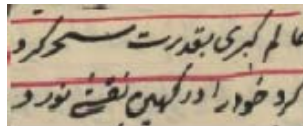 عالم کبری بقدرت سحر کرد
کرد خود را در کهین نقشی نورد